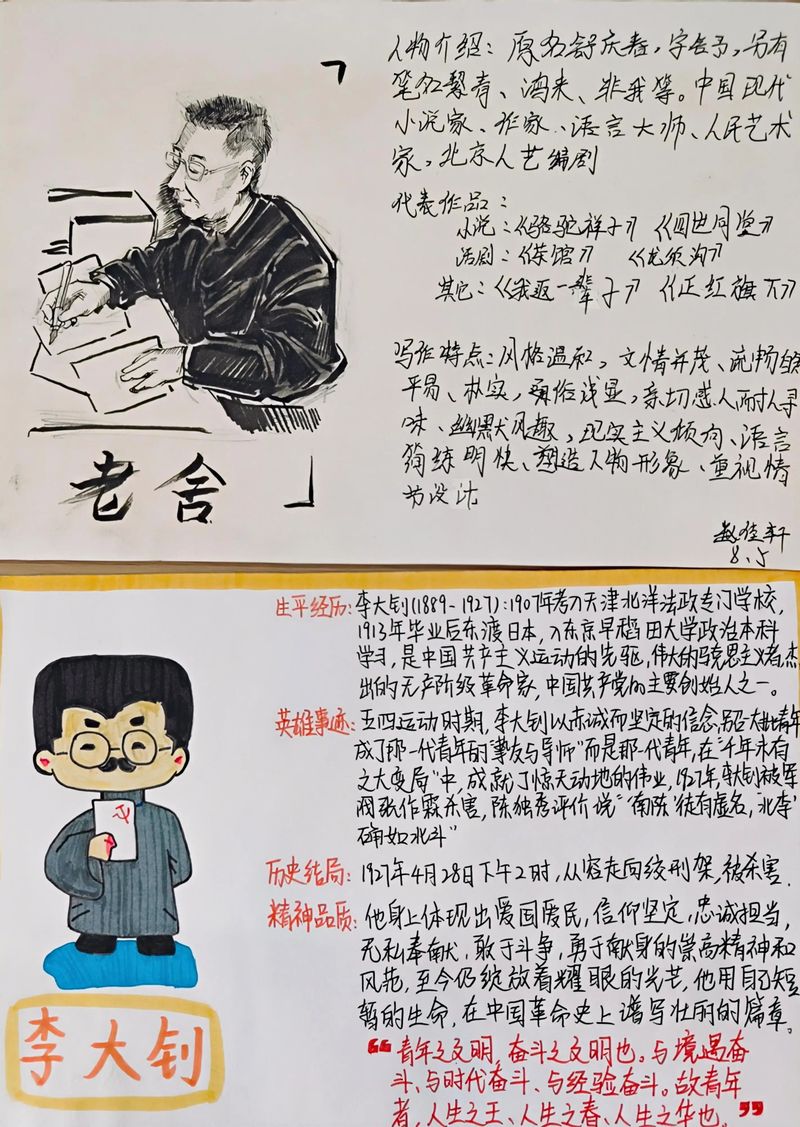 人物介绍：原名舒庆春，字舍予，另有
笔名絜青、鸿来、非我等。中国现代
小说家、作家、语言大师、人民艺术
家，北京人艺编剧
代表作品：
小说：《骆驼祥子》《四世同堂》
话剧：《茶馆》 《龙须沟》
其它：《我这一辈子》《正红旗下》
写作特点：风格温和，文情并茂、流畅
平易、朴实，通俗浅显，亲切感人而耐人寻
味、幽默风趣，现实主义倾向、语言
简练明快、塑造人物形象、重视情
节设计
老舍
赵佳轩
8.5
生平经历：李大钊(1889-1927)：1907年考入天津北洋法政专门学校，
1913年毕业后东渡日本，入东京早稻田大学政治本科
学习，是中国共产主义运动的先驱，伟大的马克思主义者，杰
出的无产阶级革命家，中国共产党的主要创始人之一。
英雄事迹：五四运动时期，李大钊以赤诚而坚定的信念，号召大批青年
成了那一代青年的"挚友与导师"而是那一代青年，在"千年未有
之大变局"中，成就了惊天动地的伟业，1927年，李大钊被军
阀张作霖杀害，陈独秀评价说"'南陈'徒有虚名，'北李'
确如北斗"
历史结局：1927年4月28日下午2时，从容走向绞刑架，被杀害.
精神品质：他身上体现出爱国爱民，信仰坚定，忠诚担当，
无私奉献，敢于斗争，勇于献身的崇高精神和
风范，至今仍绽放着耀眼的光芒，他用自己短
暂的生命，在中国革命史上谱写壮丽的篇章。
李大钊
"青年之文明，奋斗之文明也。与境遇奋
斗、与时代奋斗、与经验奋斗。故青年
者，人生之王、人生之春、人生之华也。"